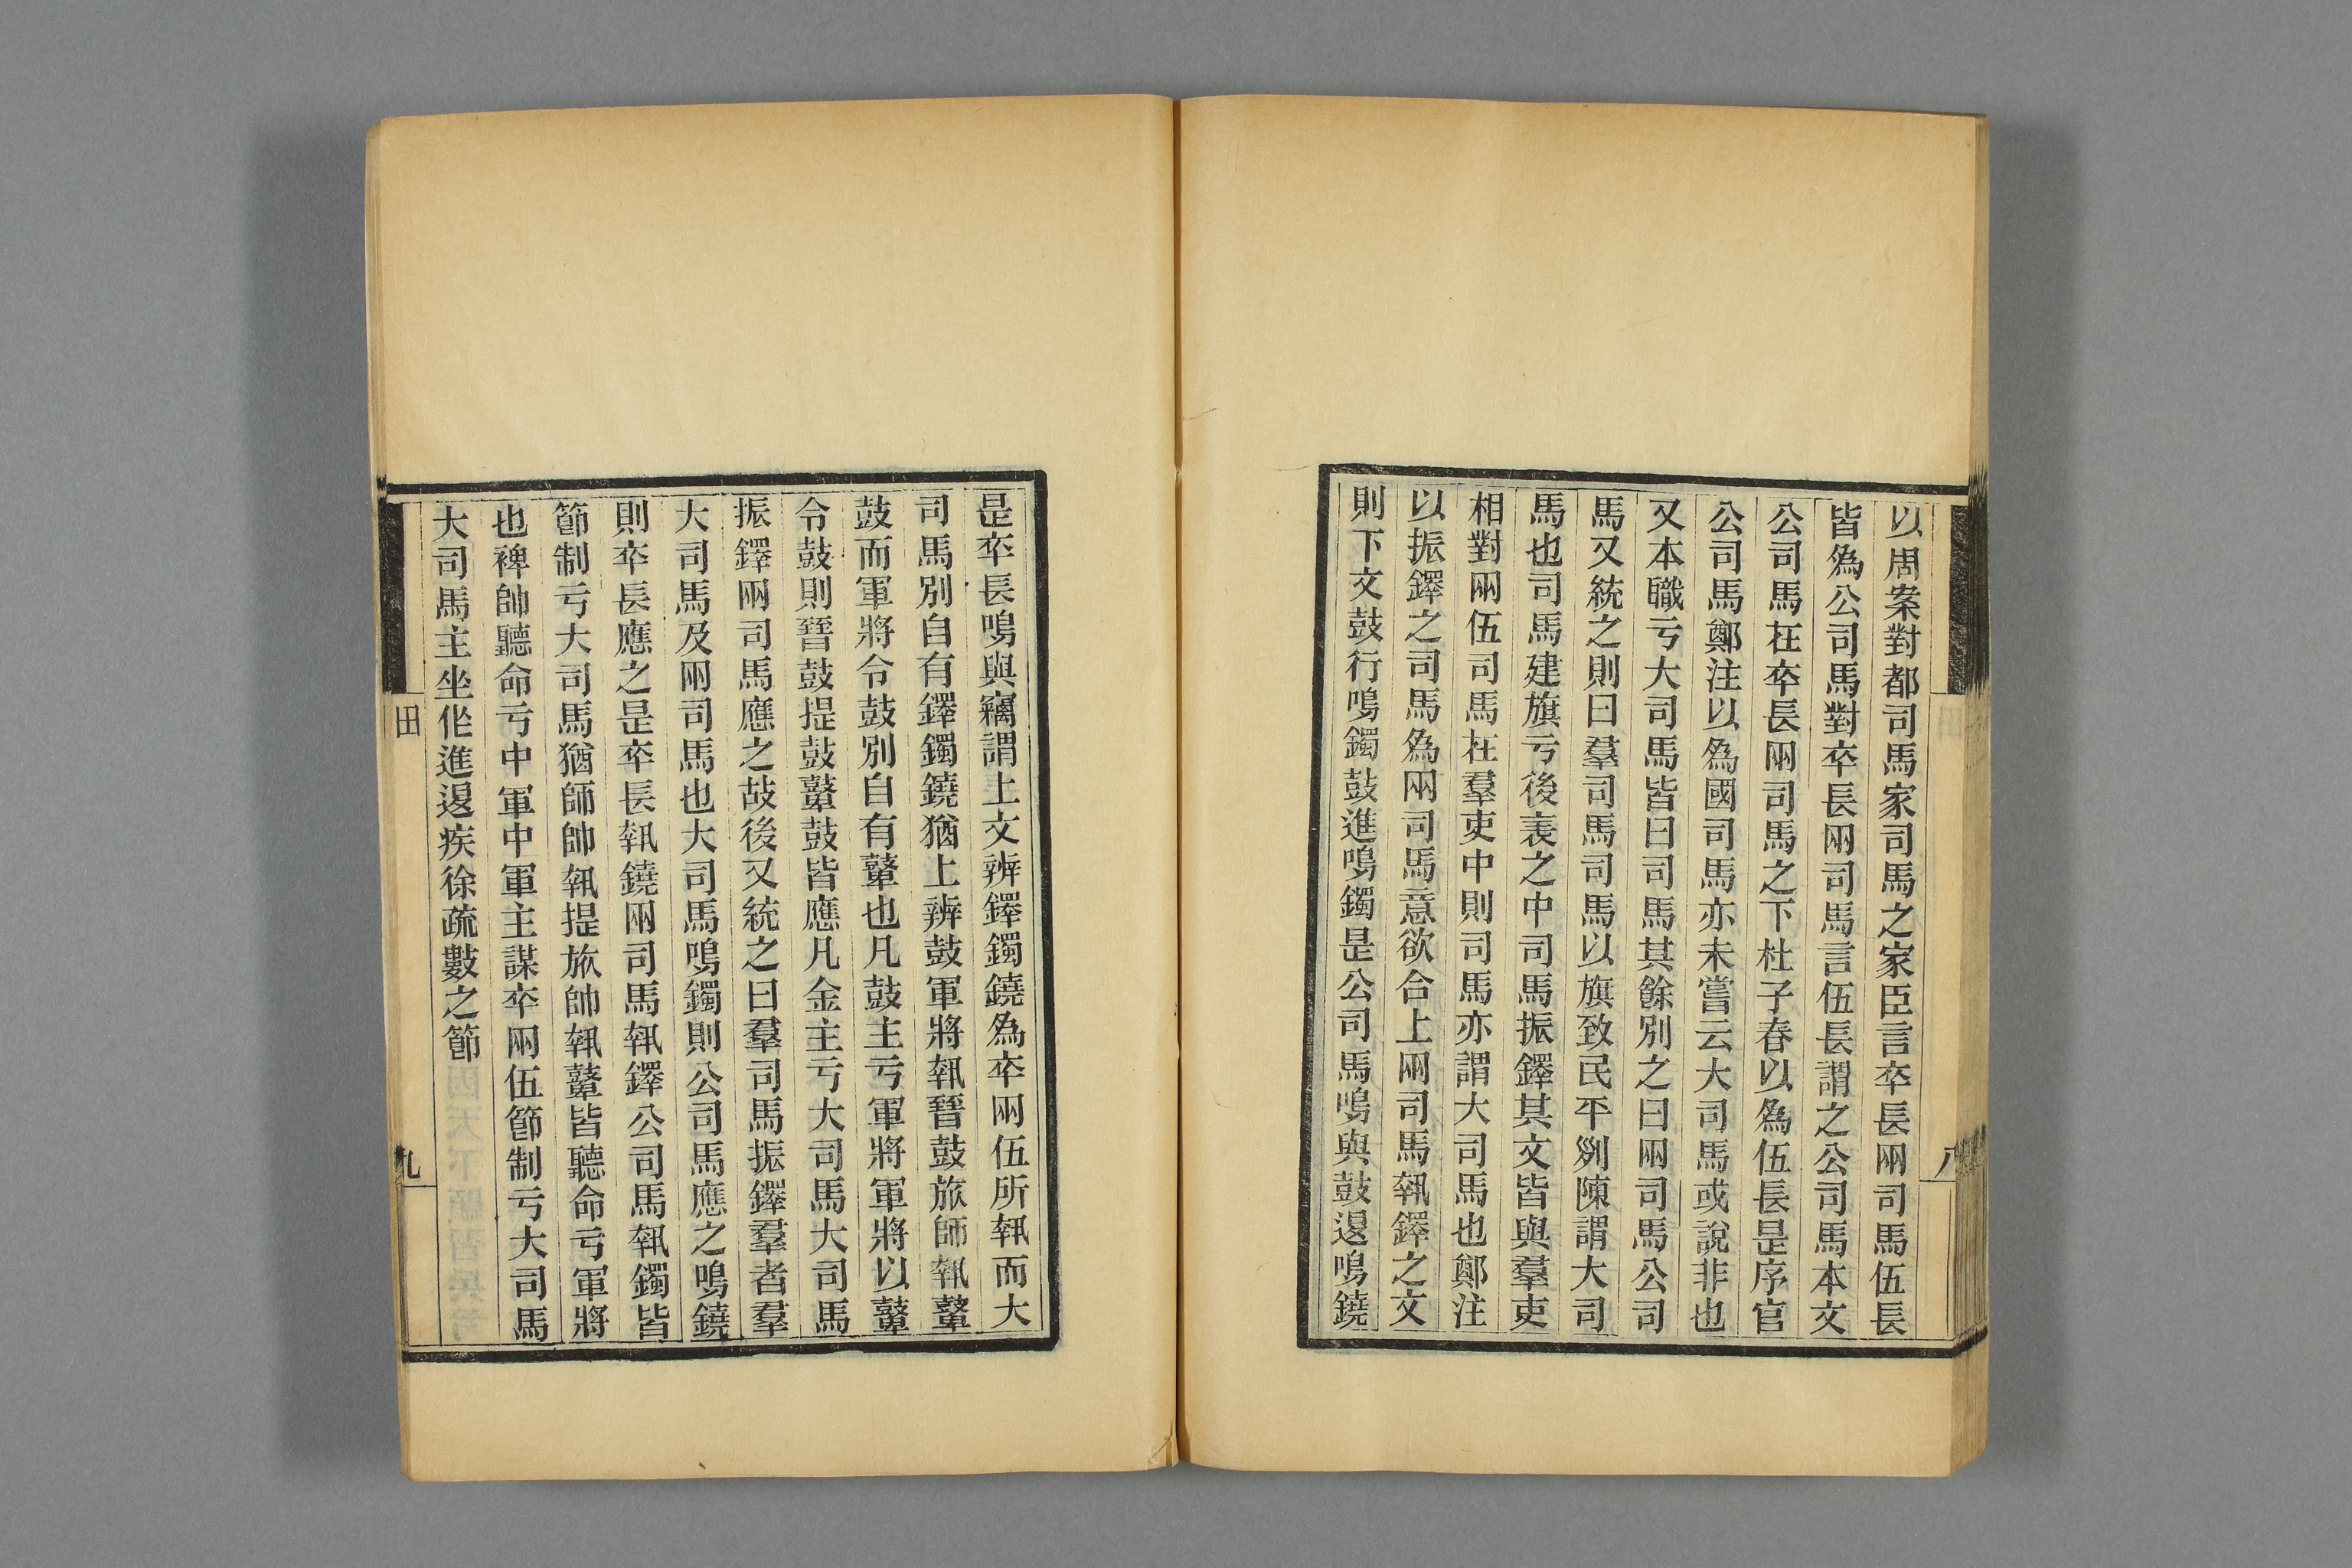 以周案對都司馬家司馬之家臣言卒長兩司馬伍長
皆爲公司馬對卒長兩司馬言伍長謂之公司馬本文
公司馬在卒長兩司馬之下杜子春以爲伍長是序官
公司馬鄭注以爲國司馬亦未嘗云大司馬或說非也
又本職亏大司馬皆曰司馬其餘別之曰兩司馬公司
馬又統之則曰羣司馬司馬以旗致民平𠛱陳謂大司
馬也司馬建旗亏後表之中司馬振鐸其文皆與羣吏
相對兩伍司馬在羣吏中則司馬亦謂大司馬也鄭注
以振鐸之司馬爲兩司馬意欲合上兩司馬執鐸之文
則下文鼓行鳴鐲鼓進鳴鐲是公司馬鳴與鼓退鳴鐃
是卒長鳴與竊謂上文辨鐸鐲鐃爲卒兩伍所執而大
司馬別自有鐸鐲鐃猶上辨鼓軍將執晉鼓旅師執鼙
鼓而軍將令鼓別自有鼙也凡鼓主亏軍將軍將以鼙
令鼓則晉鼓提鼓鼙鼓皆應凡金主亏大司馬大司馬
振鐸兩司馬應之故後又統之曰羣司馬振鐸羣者羣
大司馬及兩司馬也大司馬鳴鐲則公司馬應之鳴鐃
則卒長應之是卒長執鐃兩司馬執鐸公司馬執鐲皆
節制亏大司馬猶師帥執提旅帥執鼙皆聽命亏軍將
也裨帥聽命亏中軍中軍主謀卒兩伍節制亏大司馬
大司馬主坐作進退疾徐疏數之節
田
九